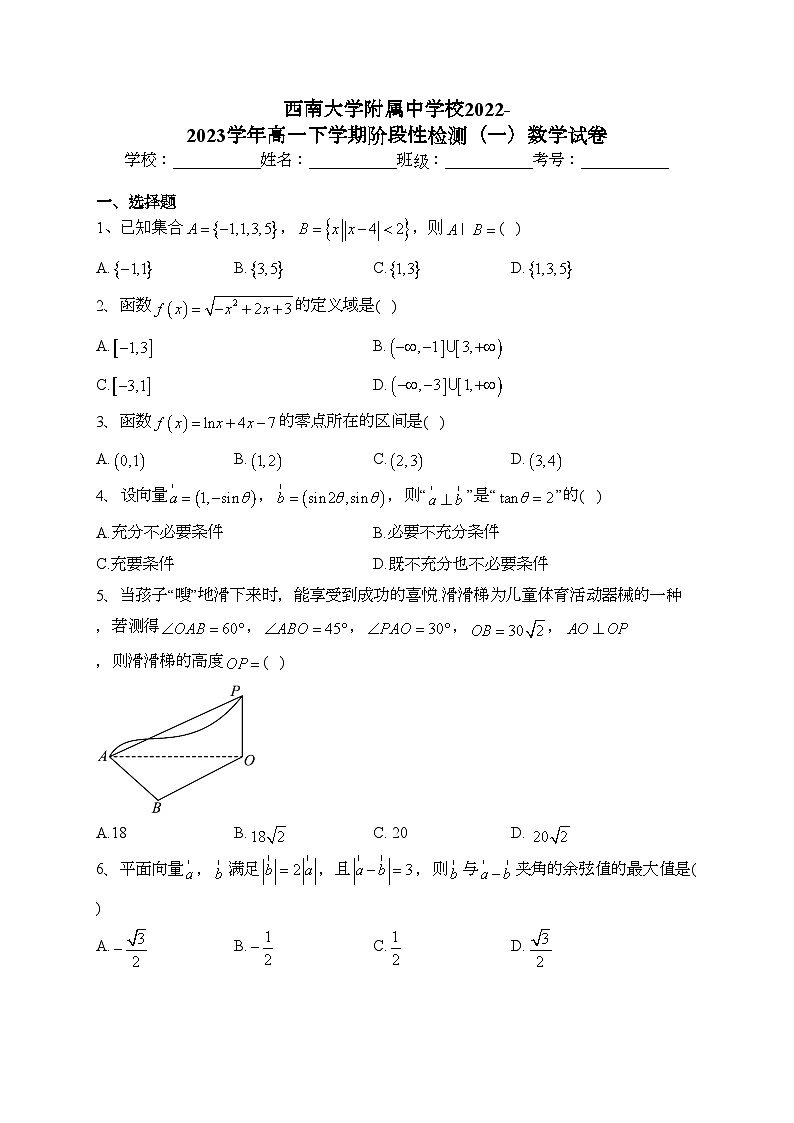 西南大学附属中学校2022-
2023学年高一下学期阶段性检测（一）数学试卷
学校：___________姓名：___________班级：___________考号：___________
一、选择题
1、已知集合A={−1,1,3,5}，B={x||x−4|<2}，则A∣B=( )
A.{−1,1} B.{3,5} C.{1,3} D.{1,3,5}
2、函数f(x)=√(−x²+2x+3)的定义域是( )
A.[−1,3] B.(−∞,−1]∪[3,+∞)
C.[−3,1] D.(−∞,−3]∪[1,+∞)
3、函数f(x)=lnx+4x−7的零点所在的区间是( )
A.(0,1) B.(1,2) C.(2,3) D.(3,4)
4、设向量a=(1,−sinθ)，b=(sin2θ,sinθ)，则“a⊥b”是“tanθ=2”的( )
A.充分不必要条件 B.必要不充分条件
C.充要条件 D.既不充分也不必要条件
5、当孩子“嗖”地滑下来时，能享受到成功的喜悦.滑滑梯为儿童体育活动器械的一种
，若测得∠OAB=60°，∠ABO=45°，∠PAO=30°，OB=30√2，AO⊥OP
，则滑滑梯的高度OP=( )
P
A
O
B
A.18 B.18√2 C. 20 D. 20√2
6、平面向量a，b满足|b|=2|a|，且|a−b|=3，则b与a−b夹角的余弦值的最大值是(
)
A.−√3/2 B.−1/2 C.1/2 D.√3/2